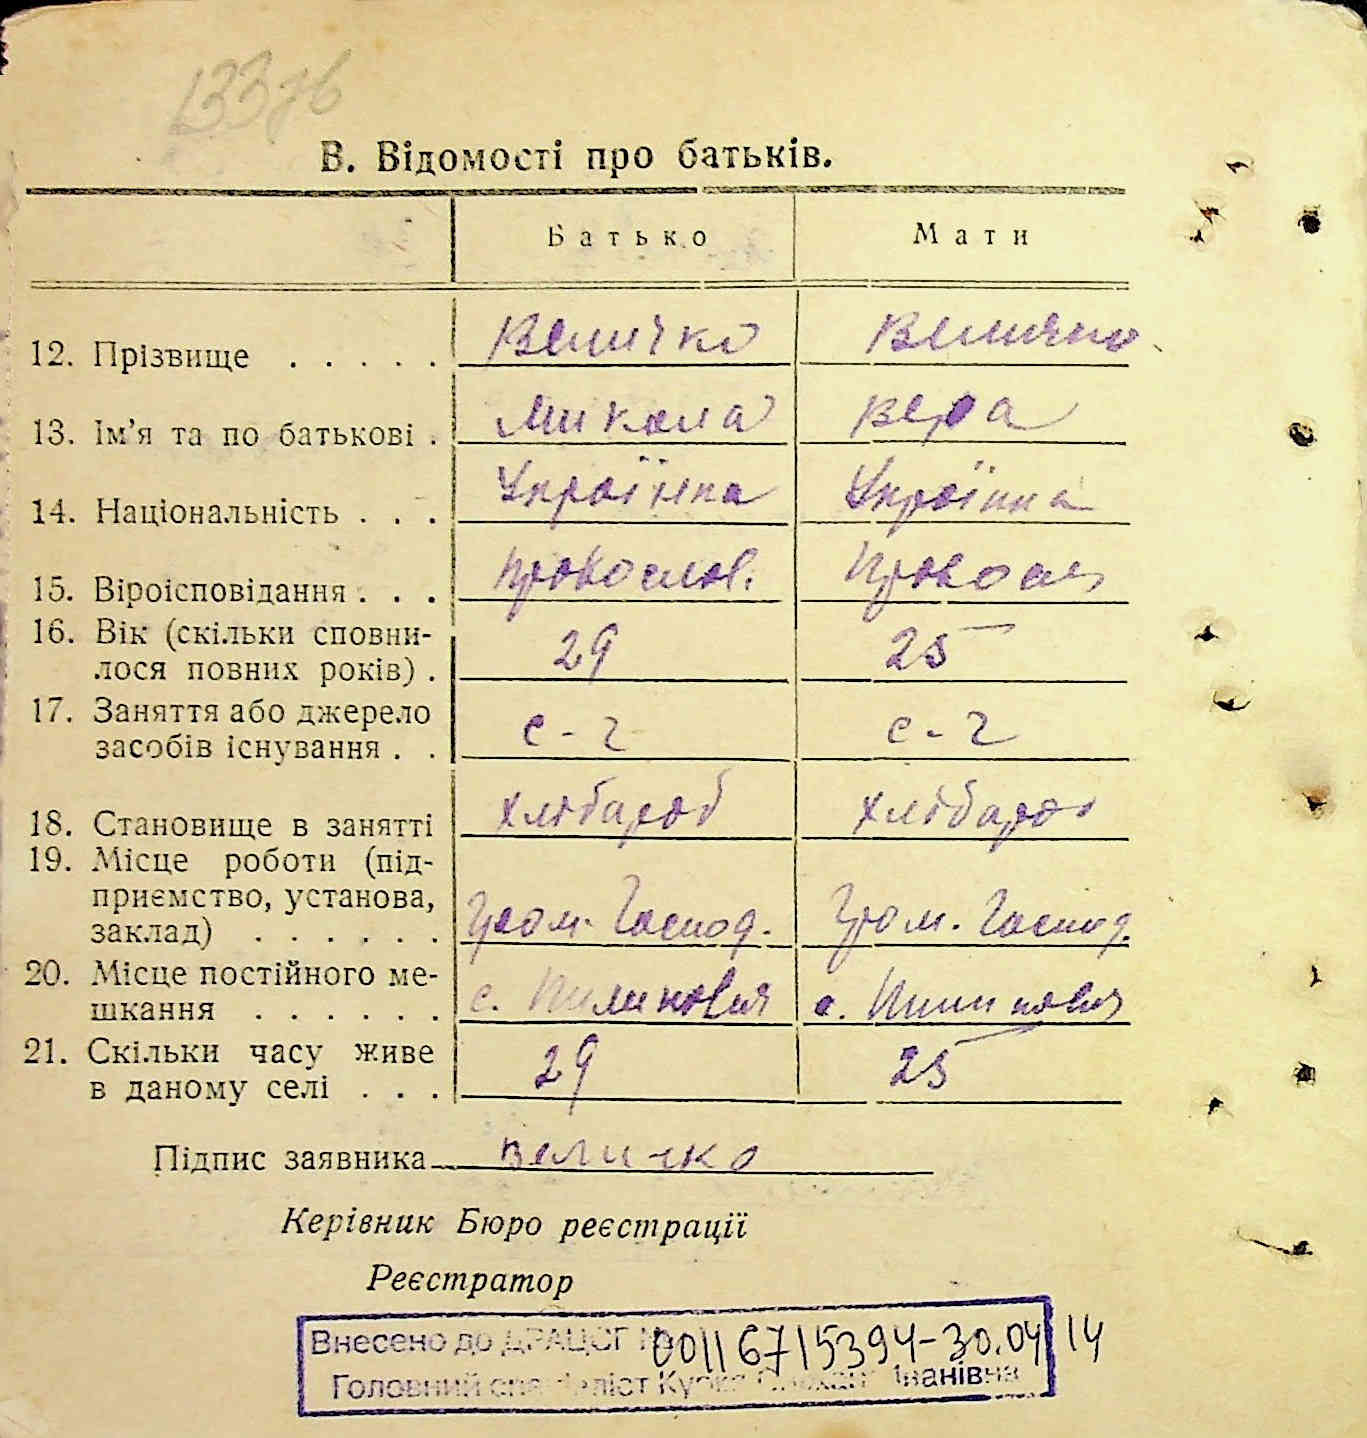 В. Відомості про батьків.
Батько Мати
12. Прізвище . . . . . Величко Величко
13. Ім'я та по батькові . Микола Вера
14. Національність . . . Українка Українка
15. Віроісповідання . . . Провослов. Провосл
16. Вік (скільки сповни-
лося повних років) . 29 25
17. Заняття або джерело
засобів існування . . с-г с-г
18. Становище в занятті хлібароб хлібароб
19. Місце роботи (під-
приємство, установа,
заклад) . . . . . . Гром. Господ. Гром. Господ.
20. Місце постійного ме-
шкання . . . . . . с. с.
21. Скільки часу живе
в даному селі . . . 29 25
Підпис заявника Величко
Керівник Бюро реєстрації
Реєстратор
Внесено до ДРАЦСГ № 00116715394-30.04.14
Головний спеціаліст Іванівна